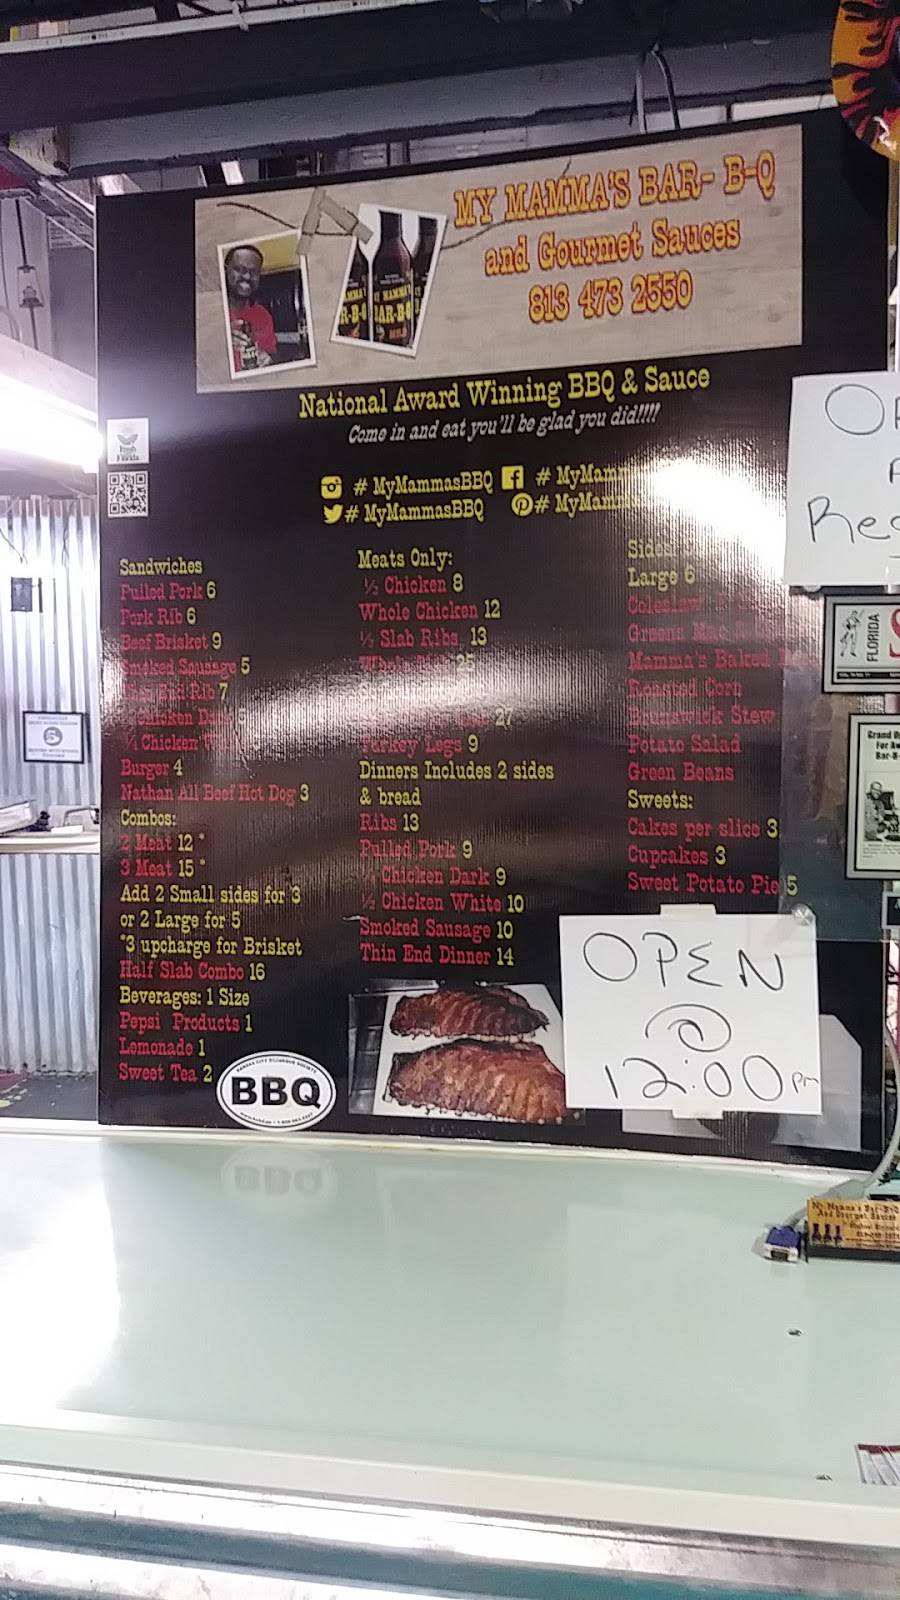 MY MAMMA'S BAR- B-Q
and Gourmet Sauces
813 473 2550
National Award Winning BBQ & Sauce
Come in and eat you'll be glad you did!!!!
# MyMammasBBQ
# MyMamm
# MyMammasBBQ
# MyMamm
Fresh
Florida
Sandwiches
Pulled Pork 6
Pork Rib 6
Beef Brisket 9
Smoked Sausage 5
End Rib 7
Chicken
Chicken
Burger 4
Nathan All Beef Hot Dog 3
Combos:
2 Meat 12 *
3 Meat 15 *
Add 2 Small sides for 3
or 2 Large for 5
*3 upcharge for Brisket
Half Slab Combo 16
Beverages: 1 Size
Pepsi Products 1
Lemonade 1
Sweet Tea 2
BBQ
Meats Only:
½ Chicken 8
Whole Chicken 12
½ Slab Ribs 13
25
27
Turkey Legs 9
Dinners Includes 2 sides
& bread
Ribs 13
Pulled Pork 9
Chicken Dark 9
½ Chicken White 10
Smoked Sausage 10
Thin End Dinner 14
Sides:
Large 6
Coleslaw
Greens Mac
Mamma's Baked
Roasted Corn
Brunswick Stew
Potato Salad
Green Beans
Sweets:
Cakes per slice 3
Cupcakes 3
Sweet Potato Pie 5
OPEN
@
12:00 pm
FLORIDA